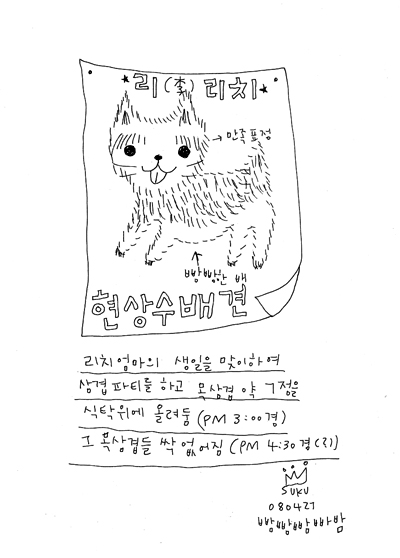 ★리(李)리치★
→만족표정
빵빵한 배
현상수배견
리치엄마의 생일을 맞이하여
삼겹파티를 하고 목삼겹 약 7점을
식탁위에 올려둠 (PM 3:00경)
그 목삼겹들 싹 없어짐 (PM 4:30경(리))
SUKU
080427
빵빵빰빠밤